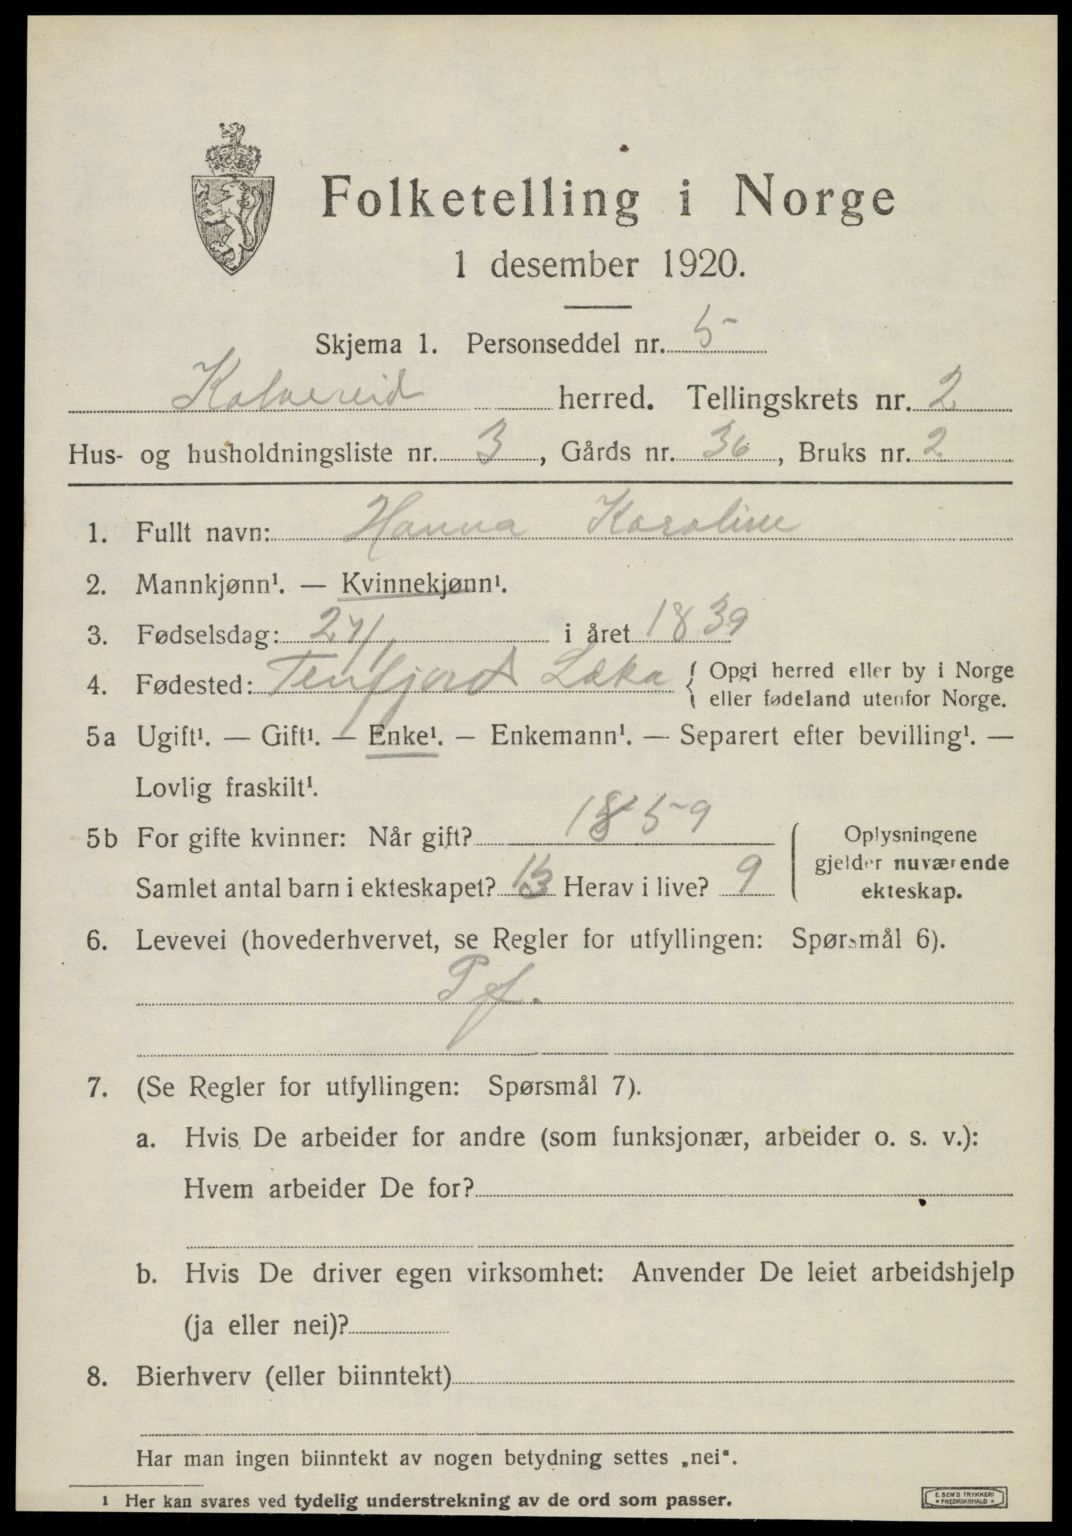 Folketelling i Norge
1 desember 1920.
Skjema 1. Personseddel nr. 5
Kolvereid herred. Tellingskrets nr. 2
Hus- og husholdningsliste nr. 3, Gårds nr. 36, Bruks nr. 2
1. Fullt navn: Hanna Karoline
2. Mannkjønn¹. — Kvinnekjønn¹.
3. Fødselsdag: i året 1839
4. Fødested: Terfjord Leka { Opgi herred eller by i Norge
eller fødeland utenfor Norge.
5a Ugift¹. — Gift¹. — Enke¹. — Enkemann¹. — Separert efter bevilling¹. —
Lovlig fraskilt¹.
5b For gifte kvinner: Når gift? 1859
Samlet antal barn i ekteskapet? 13 Herav i live? 9
Oplysningene
gjelder nuværende
ekteskap.
6. Levevei (hovederhvervet, se Regler for utfyllingen: Spørsmål 6).
7. (Se Regler for utfyllingen: Spørsmål 7).
a. Hvis De arbeider for andre (som funksjonær, arbeider o. s. v.):
Hvem arbeider De for?
b. Hvis De driver egen virksomhet: Anvender De leiet arbeidshjelp
(ja eller nei)?
8. Bierhverv (eller biinntekt)
Har man ingen biinntekt av nogen betydning settes „nei“.
¹ Her kan svares ved tydelig understrekning av de ord som passer.
E. SEM'S TRYKKERI
* FREDRIKSHALD *